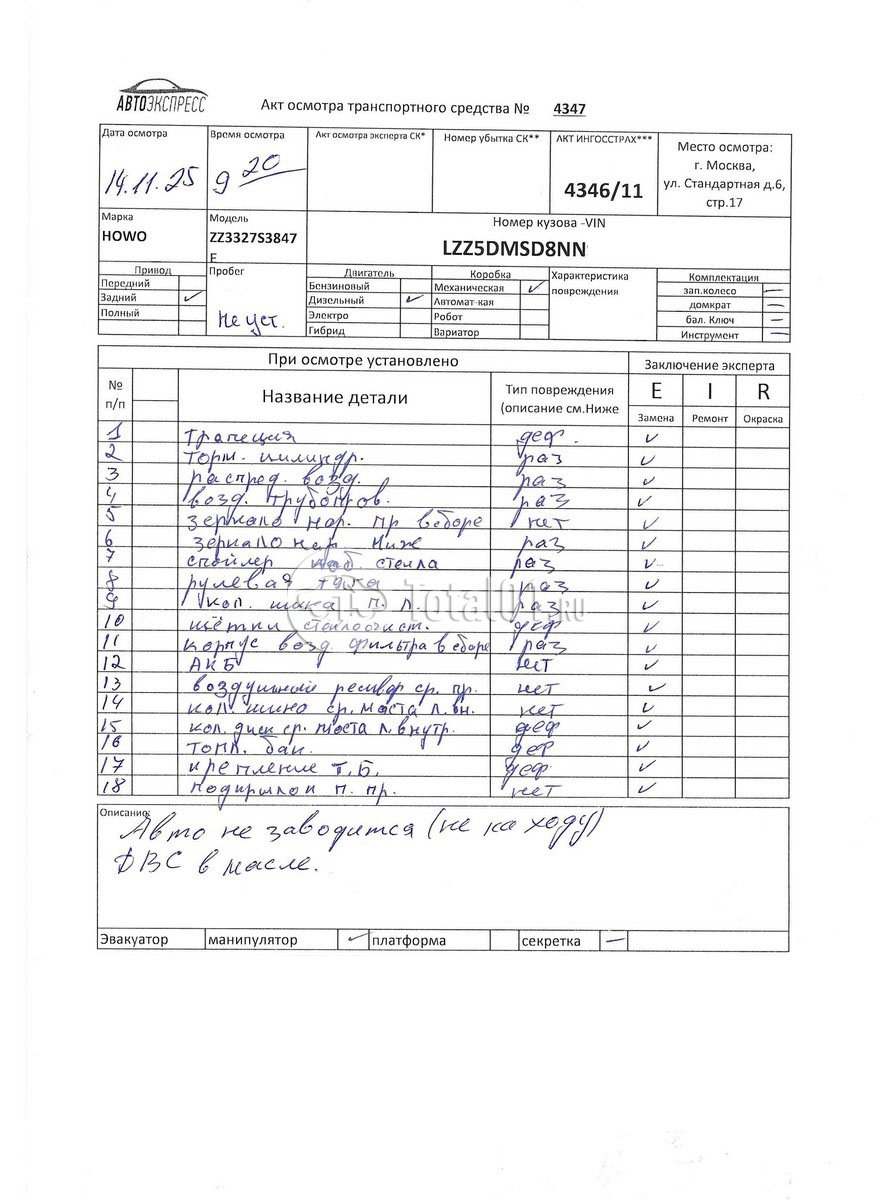 АВТОЭКСПРЕСС
Акт осмотра транспортного средства № 4347
Дата осмотра Время осмотра Акт осмотра эксперта СК* Номер убытка СК** АКТ ИНГОССТРАХ***
Место осмотра:
г. Москва,
ул. Стандартная д.6,
стр.17
14.11.25 9 20 4346/11
Марка Модель Номер кузова -VIN
HOWO ZZ3327S3847
E
LZZ5DMSD8NN
Привод Пробег Двигатель Коробка Характеристика повреждения Комплектация
Передний Бензиновый Механическая ✓ зап.колесо —
Задний ✓ Дизельный ✓ Автомат-кая домкрат —
Полный Не уст. Электро Робот бал. Ключ —
Гибрид Вариатор Инструмент —
При осмотре установлено Заключение эксперта
№ п/п Название детали Тип повреждения (описание см.Ниже E I R
Замена Ремонт Окраска
1 трапеция деф. ✓
2 торм. цилиндр. раз ✓
3 распред. возд. раз ✓
4 возд. трубопров. раз ✓
5 зеркало нар. пр в сборе нет ✓
6 зеркало нар ниже раз ✓
7 спойлер лоб. стекла раз ✓
8 рулевая тяга раз ✓
9 кол. шина п. л. раз ✓
10 щётки стеклоочист. деф ✓
11 корпус возд. фильтра в сборе раз ✓
12 АКБ нет ✓
13 воздушный ресивер ср. пр. нет ✓
14 кол. шина ср. моста л. вн. нет ✓
15 кол. диск ср. моста л. внутр. деф ✓
16 топл. бак. деф ✓
17 крепление Т.Б. деф ✓
18 подкрылок п. пр. нет ✓
Описание:
Авто не заводится (не на ходу)
ДВС в масле.
Эвакуатор манипулятор ✓ платформа секретка —
Total01.RU